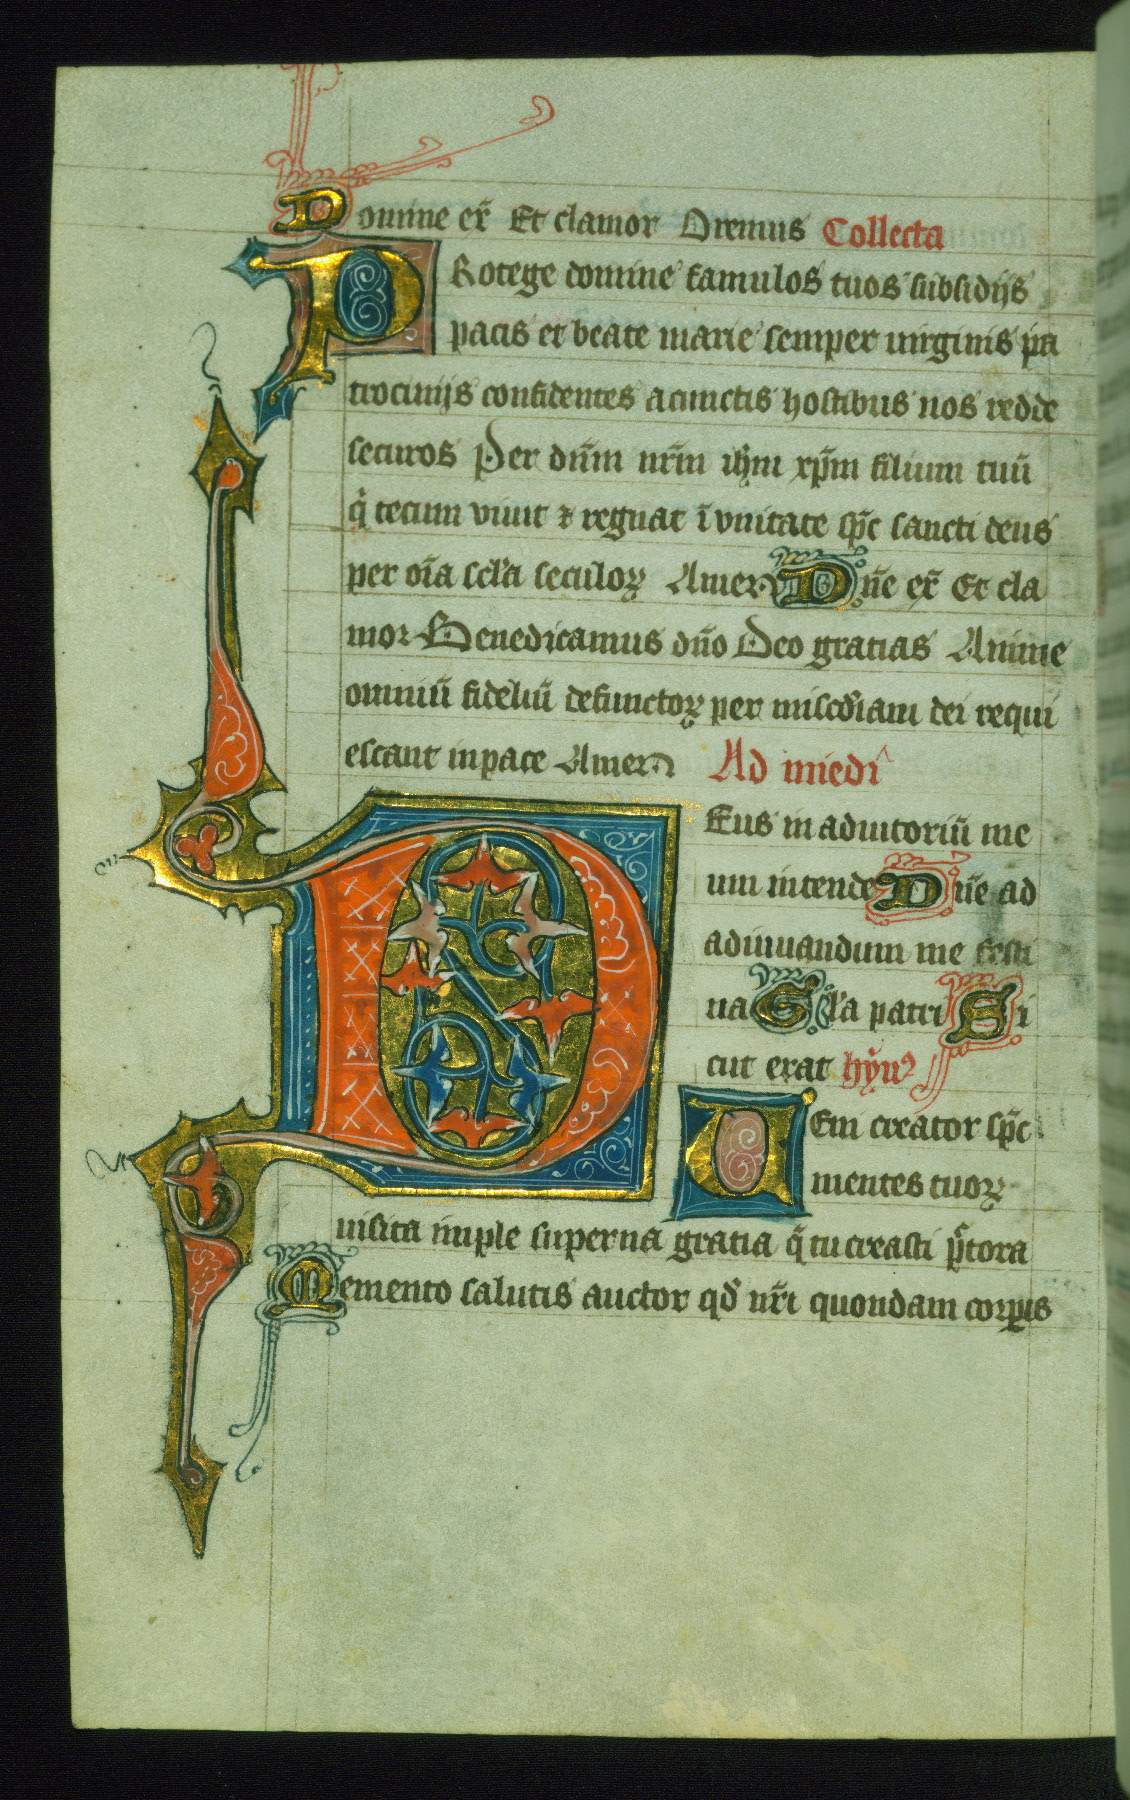 Domine ex̄ Et clamor Oremus Collecta
PRotege domine famulos tuos subsidijs
pacis et beate marie semper uirginis pa
trocinijs confidentes acunctis hostibus nos redde
securos Per dn̄m nr̄m ih̄m xp̄m filium tuū
q̇ tecum viuit ⁊ regnat ī vnitate sp̄c sancti deus
per oīa scl̄a seculoꝝ Amen Dn̄e ex̄ Et cla
mor Benedicamus dn̄o Deo gratias Anime
omniū fideliū defunctoꝝ per mis̄c̄diam dei requi
escant inpace Amen Ad miedī
DEus in adiutoriū me
um intende Dn̄e ad
adiuuandum me festi
na Gl̄a patri Si
cut erat hȳnꝰ
UEni creator sp̄c
mentes tuoꝝ
uisita imple superna gratia q̄ tu creasti p̄tora
Memento salutis auctor qd̄ nr̄i quondam corꝑis